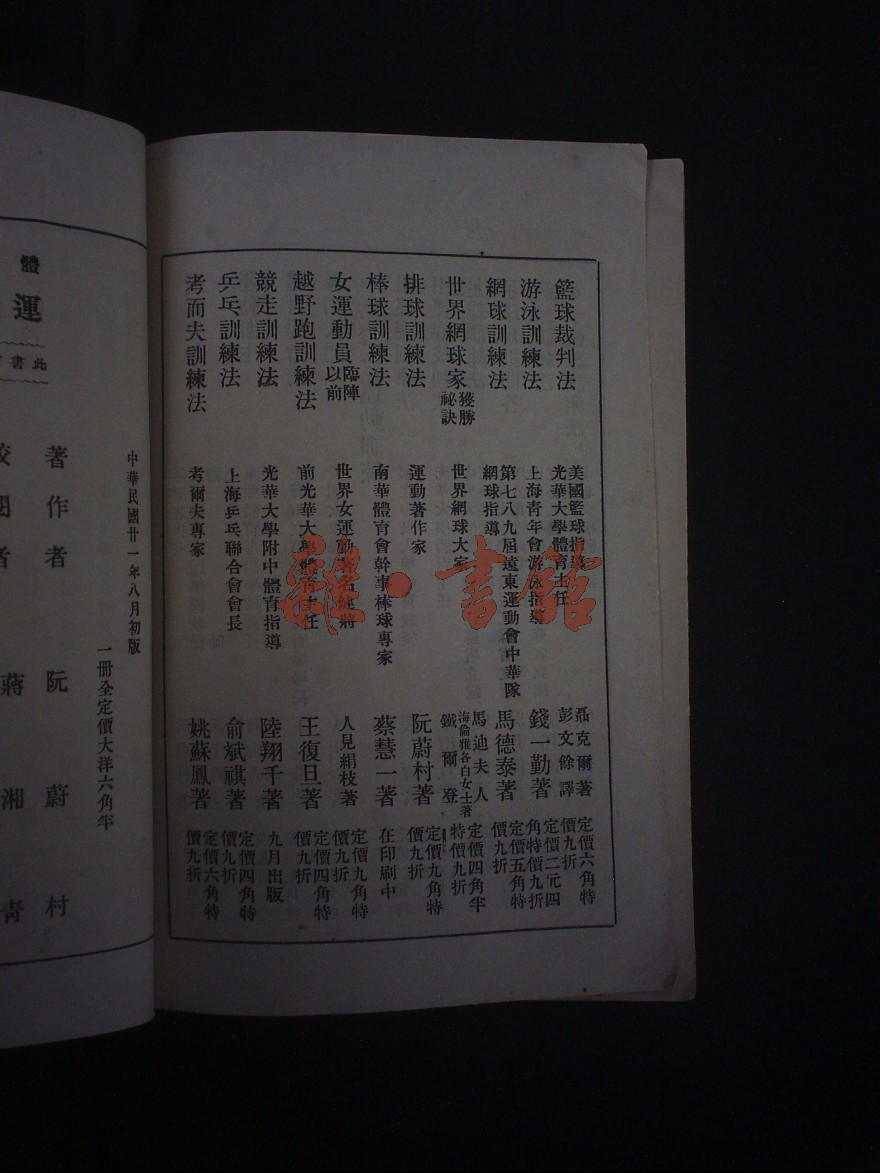 籃球裁判法 美國籃球指導 光華大學體育主任 聶克爾著 彭文餘譯 定價六角特價九折
游泳訓練法 上海青年會游泳指導 錢一勤著 定價二元四角特價九折
網球訓練法 第七八九屆遠東運動會中華隊網球指導 馬德泰著 定價五角特價九折
世界網球家獲勝祕訣 世界網球大家 馬迪夫人 海倫雅各白女士著 鐵爾登 定價四角半特價九折
排球訓練法 運動著作家 阮蔚村著 定價九角特價九折
棒球訓練法 南華體育會幹事棒球專家 蔡慧一著 在印刷中
女運動員臨陣以前 世界女運動著名健將 人見絹枝著 定價九角特價九折
越野跑訓練法 前光華大學體育主任 王復旦著 定價四角特價九折
競走訓練法 光華大學附中體育指導 陸翔千著 九月出版
乒乓訓練法 上海乒乓聯合會會長 俞斌祺著 定價四角特價九折
考而夫訓練法 考爾夫專家 姚蘇鳳著 定價六角特價九折
雜·書館
中華民國廿一年八月初版
一冊全定價大洋六角半
體
運
此書
著作者 阮蔚村
校閱者 蔣湘青